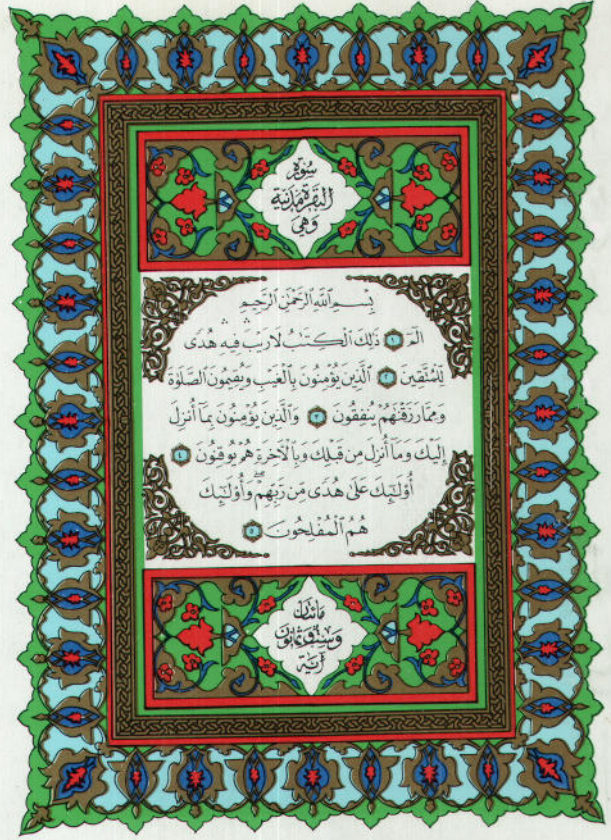 سُورَةُ
البَقَرَةِ مَدَنِيَّة
وَهِيَ
بِسْمِ ٱللَّهِ ٱلرَّحْمَٰنِ ٱلرَّحِيمِ
الٓمٓ ۝١ ذَٰلِكَ ٱلْكِتَٰبُ لَا رَيْبَ ۛ فِيهِ ۛ هُدًى
لِّلْمُتَّقِينَ ۝٢ ٱلَّذِينَ يُؤْمِنُونَ بِٱلْغَيْبِ وَيُقِيمُونَ ٱلصَّلَوٰةَ
وَمِمَّا رَزَقْنَٰهُمْ يُنفِقُونَ ۝٣ وَٱلَّذِينَ يُؤْمِنُونَ بِمَآ أُنزِلَ
إِلَيْكَ وَمَآ أُنزِلَ مِن قَبْلِكَ وَبِٱلْءَاخِرَةِ هُمْ يُوقِنُونَ ۝٤
أُوْلَٰٓئِكَ عَلَىٰ هُدًى مِّن رَّبِّهِمْ ۖ وَأُوْلَٰٓئِكَ
هُمُ ٱلْمُفْلِحُونَ ۝٥
مائتان
وست وثمانون
آية